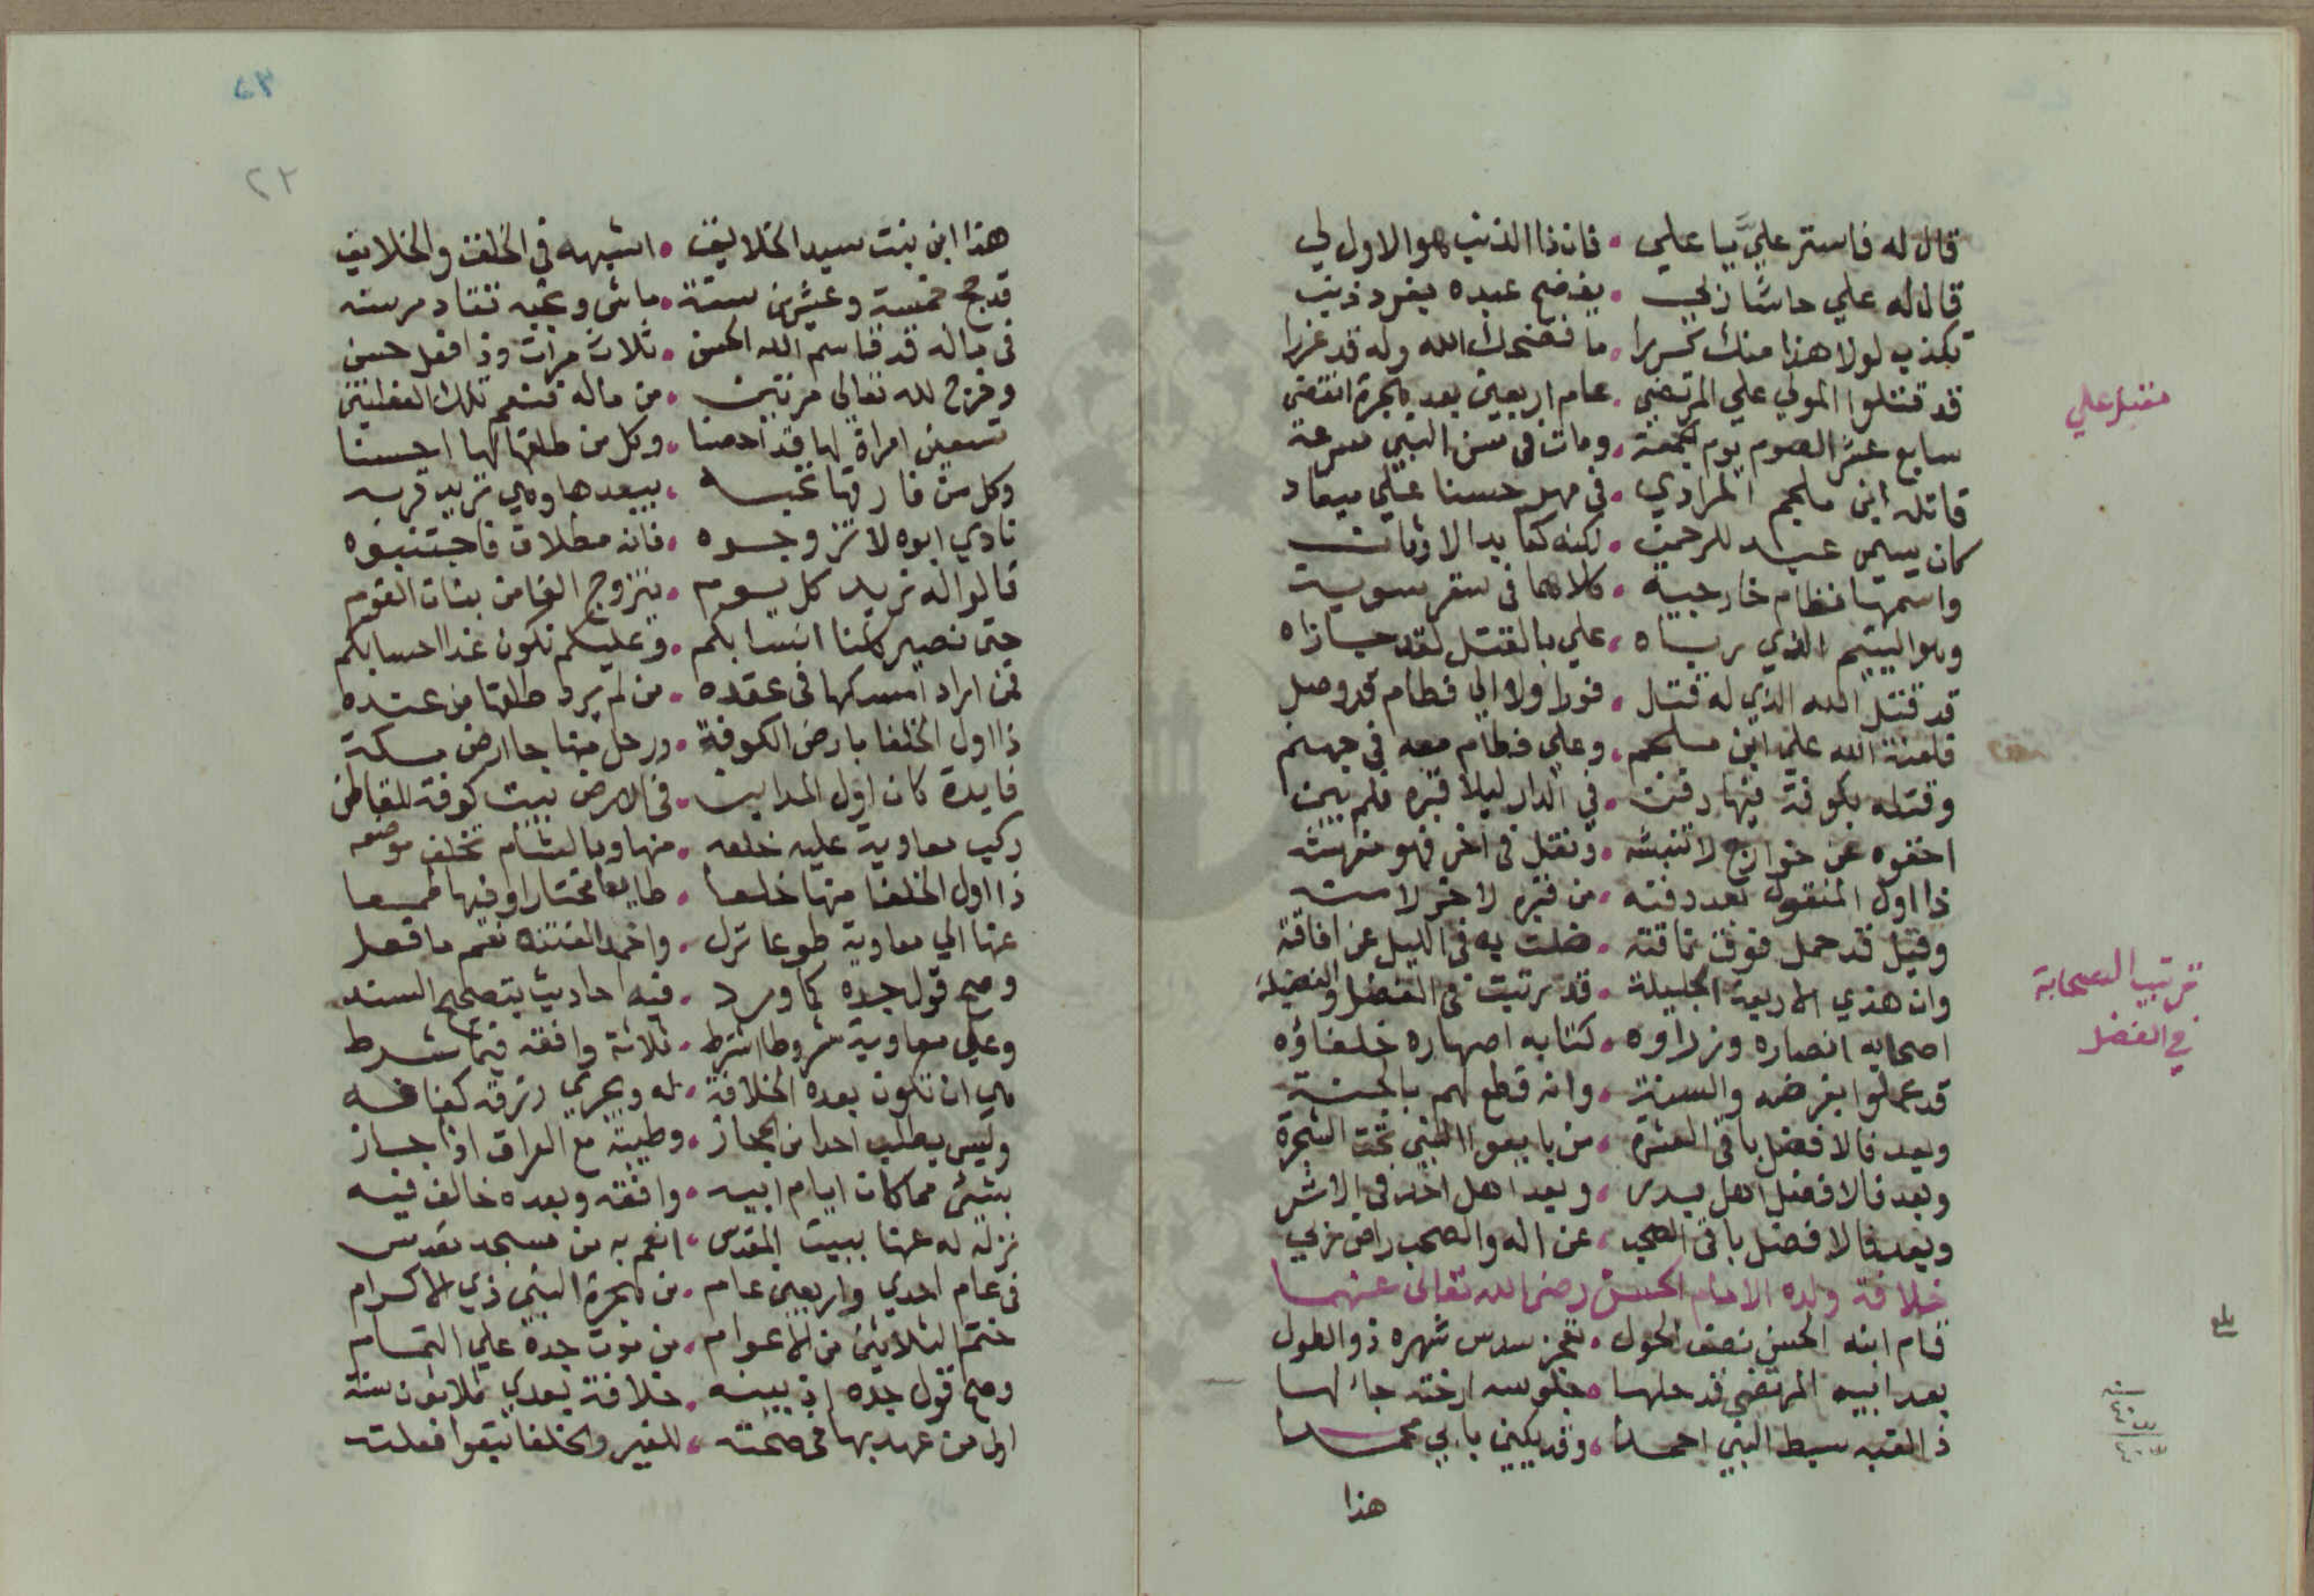 قال له فاستر عليَّ يا علي • فان ذا الذنب هو الاول لي
قال له علي حاشا ربي • يفضح عبده بفرد ذنب
تكذب لولا هذا منك تكررا • ما فضحك الله وله قد غزرا
قد قتلوا المولي علي المرتضي • عام اربعين بعد هجرة انقضى
مقتل علي
سابع عشر الصوم يوم الجمعة • ومات في سن النبي سرعة
قاتله ابن ملجم المرادي • في مهر حسنا علي ميعاد
كان يسمى عبد للرحمن • لكنه كعابد الاوثان
واسمها فطام خارجية • كلاهما في سقر سوية
وهو اليتيم الذي رباه • علي بالقتل لقد جازاه
قد قتل الله الذي له قتل • فورا ولا الي فطام قد وصل
فلعنة الله على ابن ملجم • وعلي فطام معه في جهنم
وقتله بكوفة فيها دفن • في الدار ليلا قبره فلم يبن
اخفوه عن خوارج لا تنبشه • ونقل في اخر فهو
ذا اول المنقول بعد دفنه • من قبره لاخر لامنه
وقيل قد حمل فوق ناقته • ضلت به في الليل عن افاقته
وان هذي الاربعة الجليلة • قد ترتبت في الفضل والفضيلة
ترتيب الصحابة
في الفضل
اصحابه انصاره وزراوه • كتابه اصهاره خلفاؤه
قد عملوا بفرضه والسنة • وانه قطع لهم بالجنة
وبعد فالافضل باقي العشرة • من بايعوا النبي تحت الشجرة
وبعد فالافضل اهل بدر • وبعد اهل احد في الاثر
وبعد فالافضل باقي الصحب • عن اله والصحب راض ربي
خلافة ولده الامام الحسن رضي الله تعالى عنهما
قام ابنه الحسن نصف الحول • سدس شهره ذو الطول
بلغ
بعد ابيه المرتضي قد حلها • جلوسه ارخته جا لها
سنة
٤٠
ذ القبه سبط النبي احمدا • وقد يكنى بابي محمدا
هذا
٢٣
٢٢
هذا ابن بنت سيد الخلايق • اشبهه في الخلق والخلايق
قد حج خمسة وعشرين سنة • ماشي ونجبه تقاد مرسنه
في ماله قد قاسم الله الحسن • ثلاث مرات وذا فعل حسن
وخرج لله تعالى مرتين • من ماله فنعم تلك الفعلتين
تسعين امراة لها قد احصنا • وكل من طلقها لها احسنا
وكل من فارقها تحبه • يبعدها وهي تريد قربه
نادي ابوه لا تزوجوه • فانه مطلاق فاجتنبوه
قالوا له نريد كل يوم • يتزوج الفا من بنات القوم
حتى نصير كلنا انسابكم • وعليكم نكون غدا احسابكم
فمن اراد امسكها في عقده • من لم يرد طلقها من عنده
ذا اول الخلفا بارض الكوفة • ورحل منها جا ارض مكة
فايدة كان اول المداين • في الارض بيت كوفة للقاطن
ركب معاوية عليه خلعه • منها وبالشام تخلف موضعه
ذا اول الخلفا منها خلعا • طايعا مختارا وفيها طمعا
عنها الي معاوية طوعا نزل • واخمد الفتنه نعم ما فعل
وصح قول جده كما ورد • فيه احاديث بتصحيح السند
وعلي معاوية شروطا اشترط • ثلاثة وافقه فيما شرط
هي ان تكون بعده الخلافة • له ويجري رزقه كفافه
وليس يطلب احدا من الحجاز • وطيبة مع العراق اذا جاز
بشئ مما كان ايام ابيه • وافقه وبعده خالف فيه
نزله له عنها ببيت المقدس • انعم به من مسجد مقدس
في عام احدي واربعين عام • من هجرة النبي ذي الاكرام
ختم الثلاثين من الاعوام • من موت جده علي التمام
وصح قول جده اذ بينه • خلافة بعدي ثلاثون سنة
اول من عهد بها في صحته • للغير والخلفا فعلته